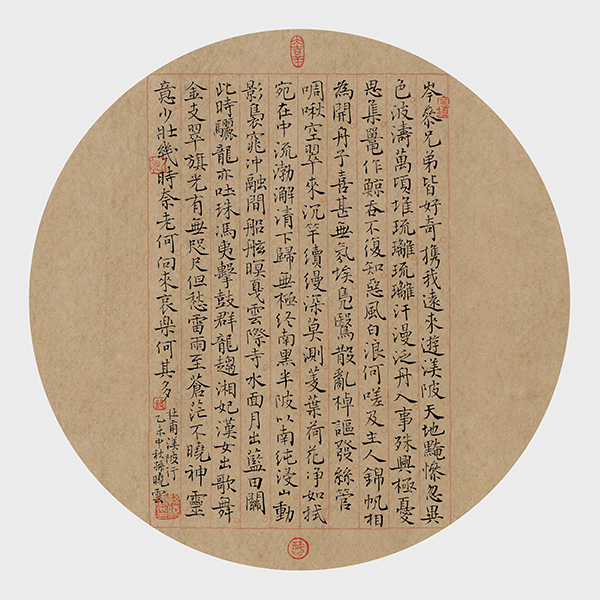 岑參兄弟皆好奇攜我遠來遊渼陂天地黤慘忽異
色波濤萬頃堆琉璃琉璃汗漫泛舟入事殊興極憂
思集鼉作鯨吞不復知惡風白浪何嗟及主人錦帆相
為開舟子喜甚無氛埃鳧鷖散亂棹謳發絲管
啁啾空翠來沉竿續縵深莫測菱葉荷花淨如拭
宛在中流渤澥清下歸無極終南黑半陂以南純浸山動
影裊窕沖融間船舷暝戛雲際寺水面月出藍田關
此時驪龍亦吐珠馮夷擊鼓群龍趨湘妃漢女出歌舞
金支翠旗光有無咫尺但愁雷雨至蒼茫不曉神靈
意少壯幾時奈老何向來哀樂何其多
杜甫渼陂行
乙未中秋孫曉雲
大吉羊